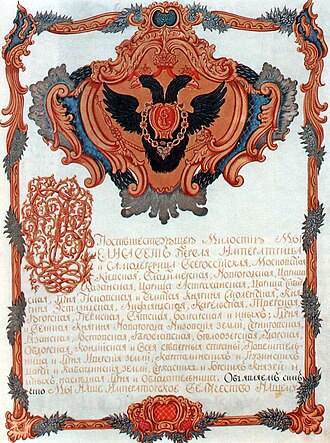 Поспѣшествующею Милостїю Мы
ЕЛИСАВЕТЪ Первая Императрица
и Самодержица Всероссїйская, Московская
Кїевская, Владимерская, Новогородская, Царица
Казанская, Царица Астраханская, Царица Сибир
ская, Гдрня Псковская и Великая Княгиня Смоленская, Кня
гиня Эстляндская, Лифляндская, Карельская, Тверская
Югорская, Пермская, Вятская, Болгарская и иныхъ, Гдрня
и Великая Княгиня Новагорода Низовскїя земли, Черниговская
Рязанская, Ростовская, Ярославская, Белоозерская, Удорская,
Обдорская, Кондїйская и Всея Сѣверныя страны, Повелитель
ница и Гдрня Иверскїя земли, Карталинскихъ и Грузинскихъ
Царей и Кабардинскїя земли, Черкаскихъ и Горскихъ Князей и
иныхъ наслѣдная Гдрня и Обладательница. Объявляемъ симъ
что Мы Наше Императорское Величество